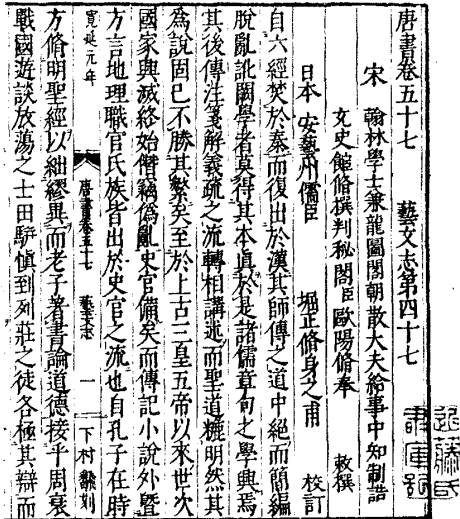 唐書卷五十七 藝文志第四十七
宋 翰林學士兼龍圖閣朝散大夫給事中知制誥
充史館脩撰判秘閣臣歐陽脩奉 敕撰
日本 安藝州儒臣 堀正脩身之甫 校訂
自六經焚於秦而復出於漢其師傳之道中絕而簡編
脫亂訛闕學者莫得其本真於是諸儒章句之學興焉
其後傳注箋解義疏之流轉相講述而聖道粗明然其
為說固已不勝其繁矣至於上古三皇五帝以來世次
國家興滅終始僭竊偽亂史官備矣而傳記小說外暨
方言地理職官氏族皆出於史官之流也自孔子在時
寬延元年 唐書卷五十七 藝文志 一 下村 刻
方脩明聖經以絀繆異而老子著書論道德接乎周衰
戰國遊談放蕩之士田駢慎到列莊之徒各極其辯而